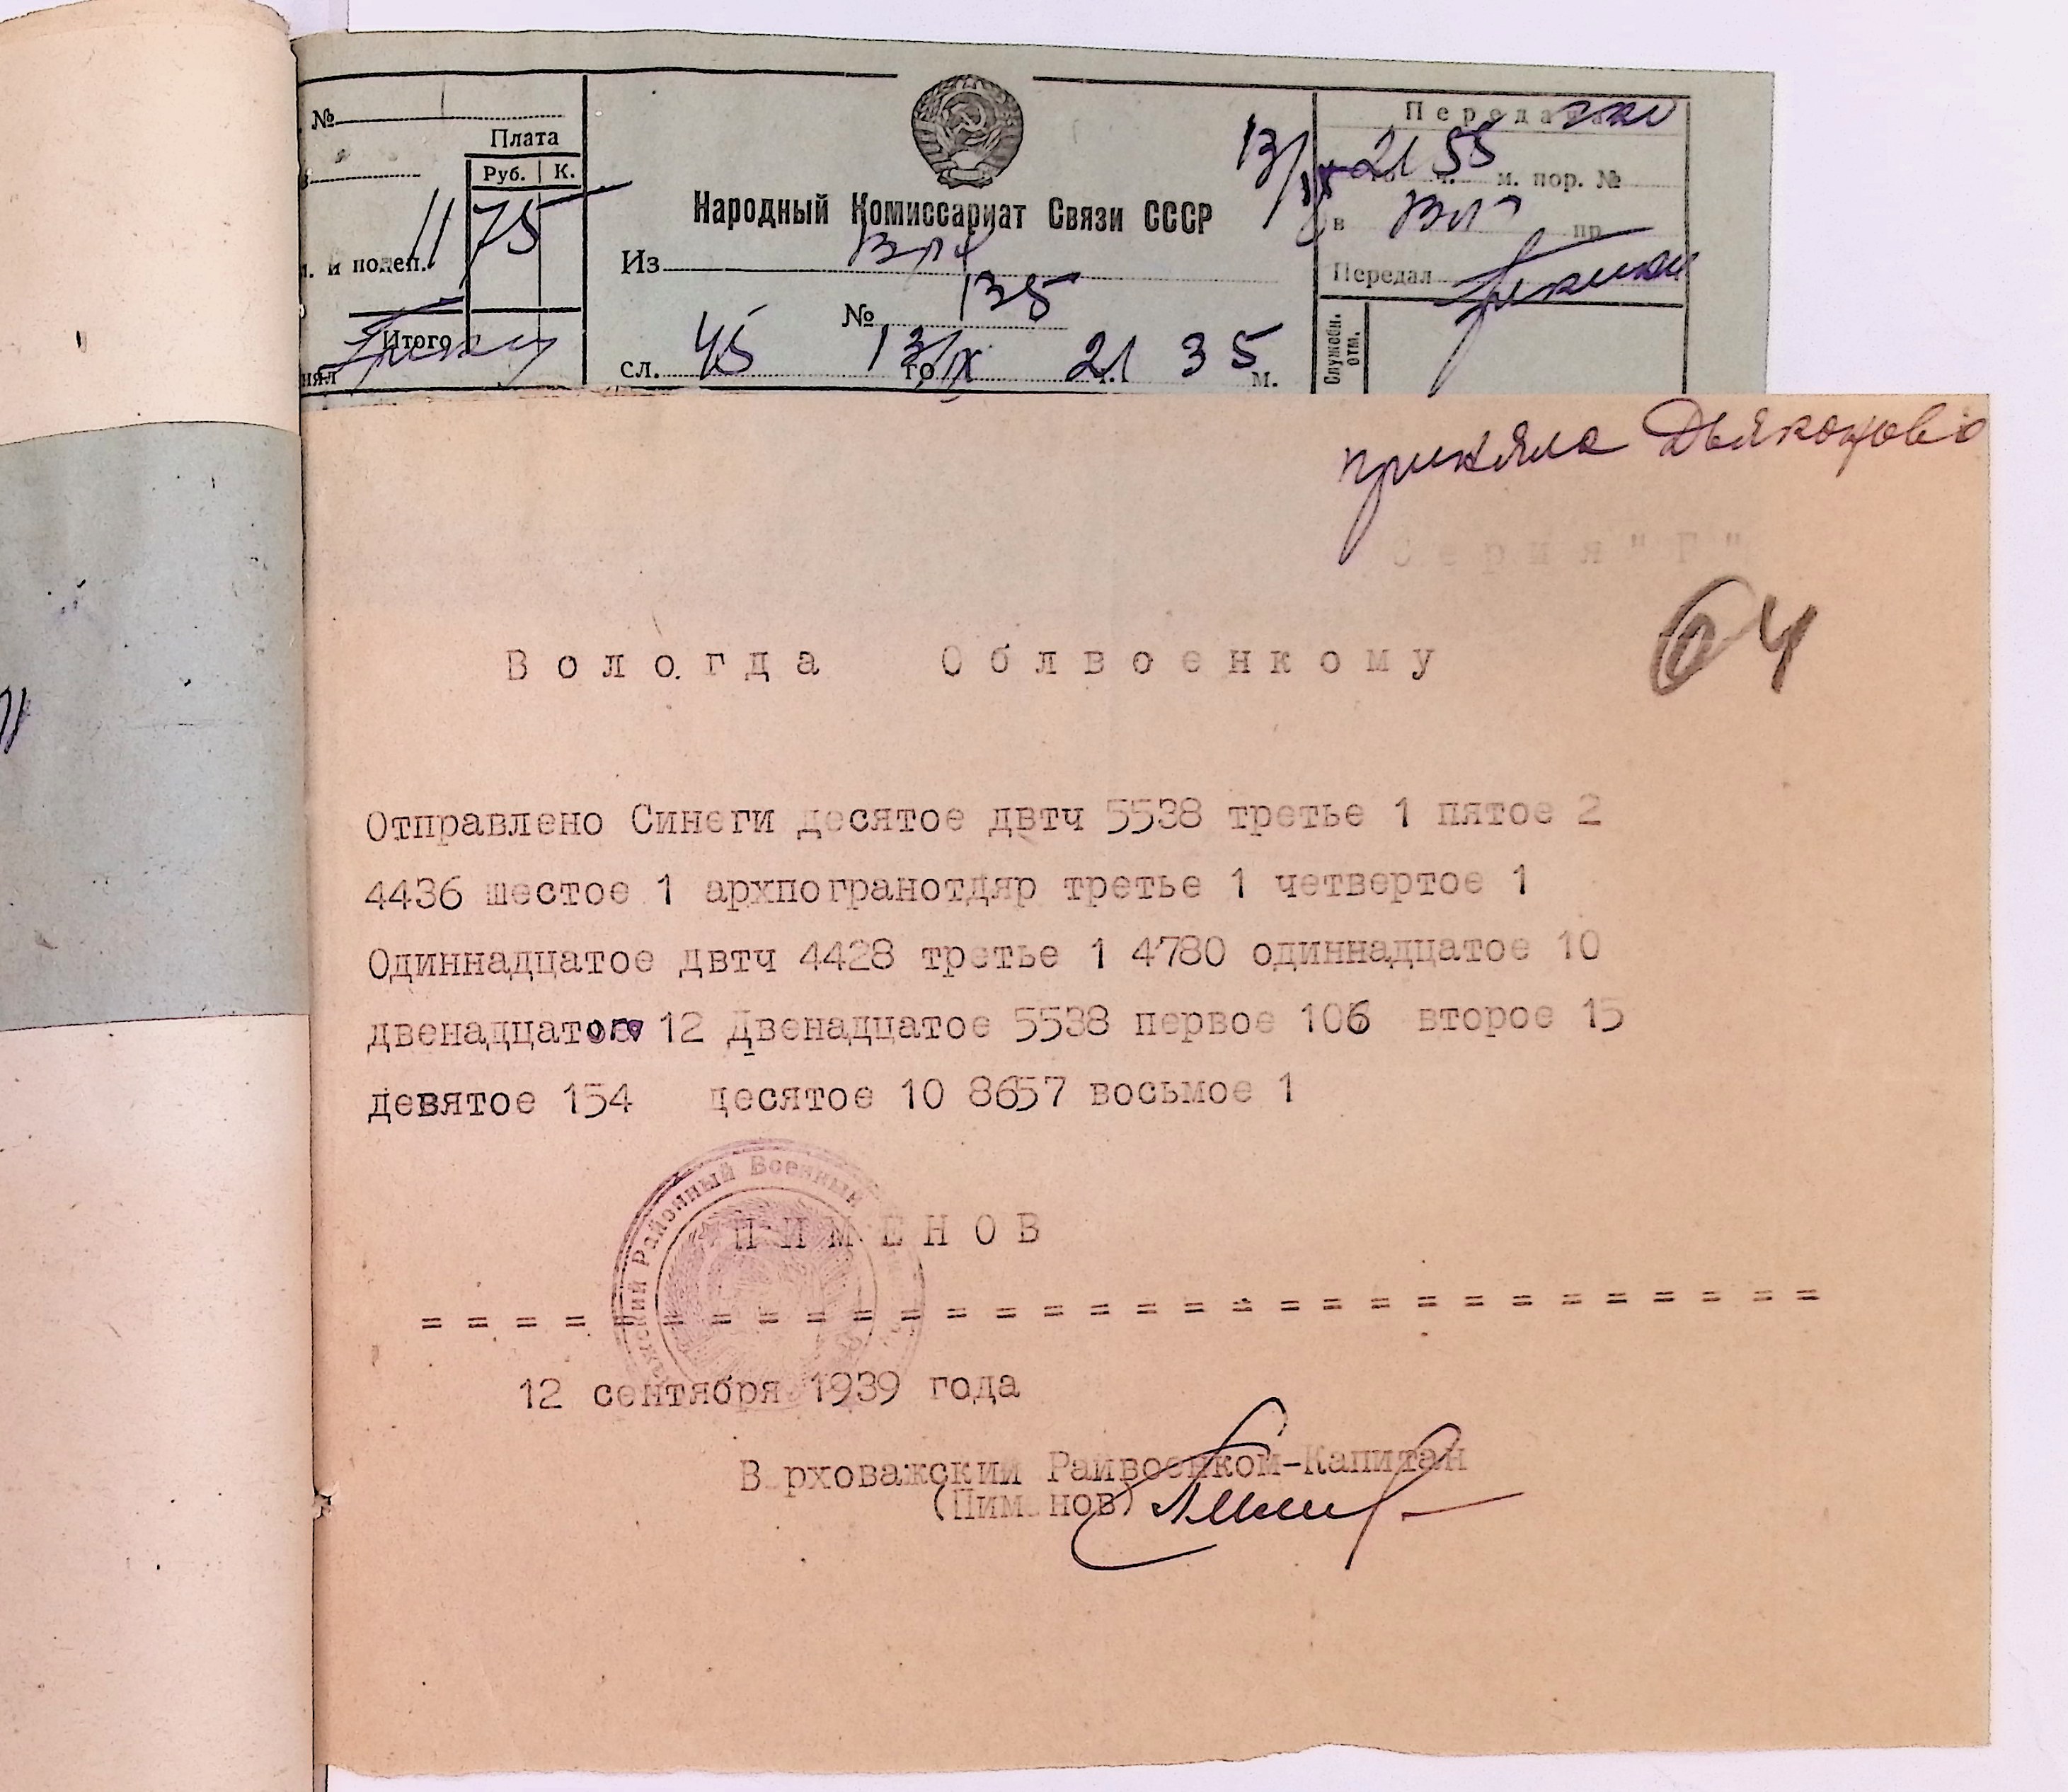 №
Плата
Руб. К.
11 75
и подеп.
Итого
Народный Комиссариат Связи СССР
Из
№ 135
сл. 45 13/X го 21 ч. 35 м.
Передача
13/ 21 55 м. пор. №
в пр
Передал
Служебн. отм.
приняла Дьяконова
Серия "Г"
64
Вологда Облвоенкому
Отправлено Синеги десятое двтч 5538 третье 1 пятое 2
4436 шестое 1 архпогранотдяр третье 1 четвертое 1
Одиннадцатое двтч 4428 третье 1 4780 одиннадцатое 10
двенадцатого 12 Двенадцатое 5538 первое 106 второе 15
девятое 154 десятое 10 8657 восьмое 1
Районный Военный
ПИМЕНОВ
= = = = = = = = = = = = = = = = = = = = = = = = = = = = = =
12 сентября 1939 года
В рховажский Райвоенком-Капитан
(Пим нов)